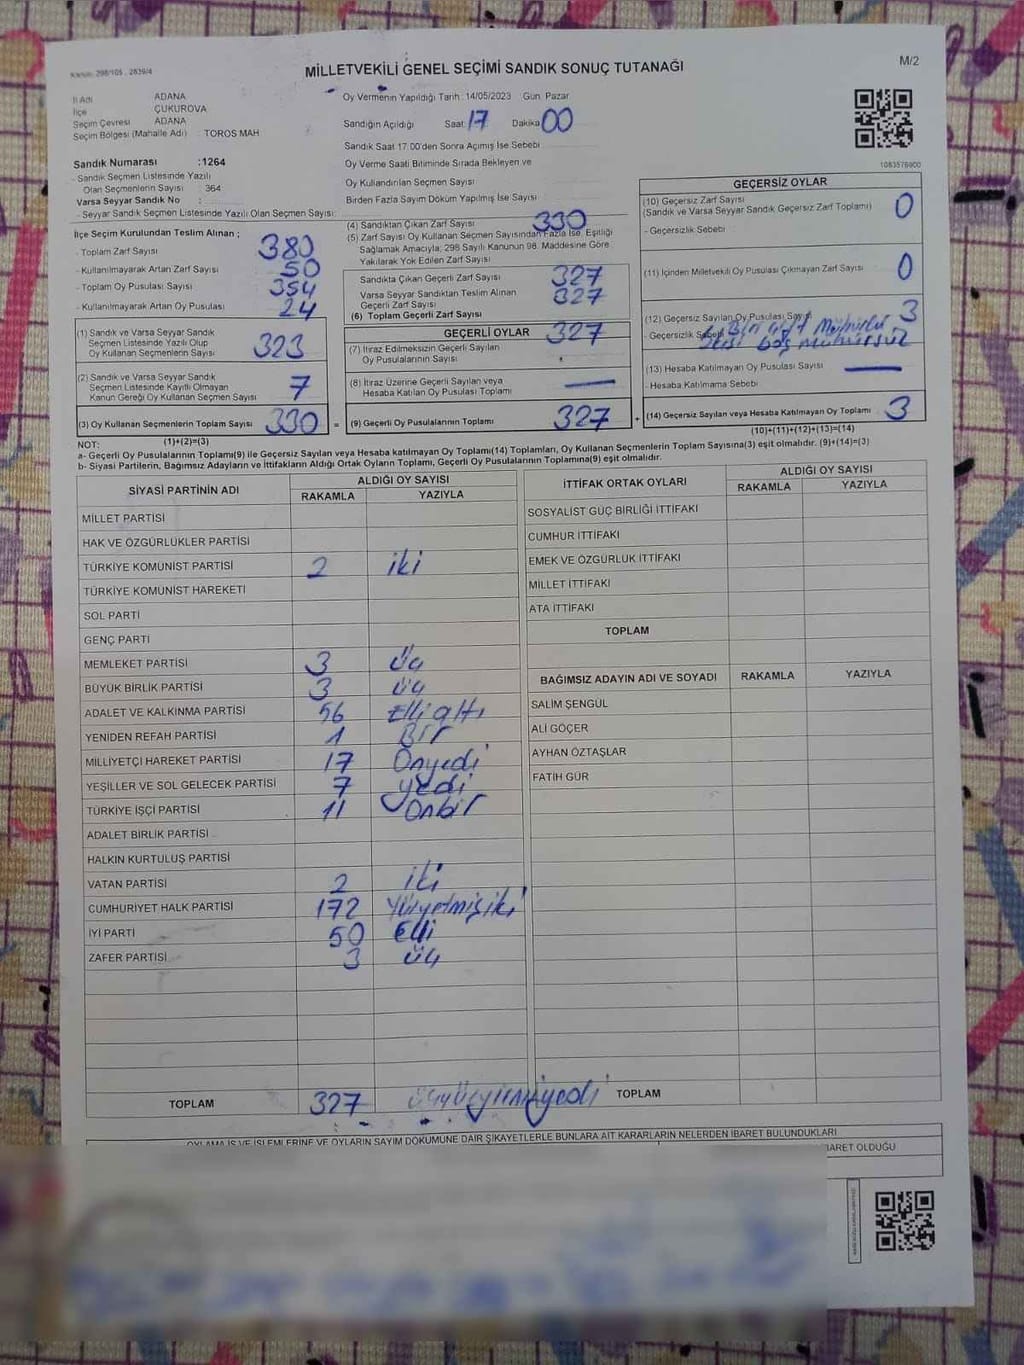 Kanun: 298/105 , 2839/4
MİLLETVEKİLİ GENEL SEÇİMİ SANDIK SONUÇ TUTANAĞI
M/2
İl Adı ADANA
İlçe ÇUKUROVA
Seçim Çevresi ADANA
Seçim Bölgesi (Mahalle Adı) : TOROS MAH
Sandık Numarası :1264
- Sandık Seçmen Listesinde Yazılı
Olan Seçmenlerin Sayısı : 364
Varsa Seyyar Sandık No :
- Seyyar Sandık Seçmen Listesinde Yazılı Olan Seçmen Sayısı:
Oy Vermenin Yapıldığı Tarih :14/05/2023 Gün: Pazar
Sandığın Açıldığı Saat: 17 Dakika: 00
Sandık Saat 17:00'den Sonra Açımış İse Sebebi
Oy Verme Saati Bitiminde Sırada Bekleyen ve
Oy Kullandırılan Seçmen Sayısı
Birden Fazla Sayım Döküm Yapılmış İse Sayısı
1083576900
İlçe Seçim Kurulundan Teslim Alınan ;
- Toplam Zarf Sayısı 380
- Kullanılmayarak Artan Zarf Sayısı 50
- Toplam Oy Pusulası Sayısı 354
- Kullanılmayarak Artan Oy Pusulası 24
(1) Sandık ve Varsa Seyyar Sandık
Seçmen Listesinde Yazılı Olup
Oy Kullanan Seçmenlerin Sayısı 323
(2) Sandık ve Varsa Seyyar Sandık
Seçmen Listesinde Kayıtlı Olmayan
Kanun Gereği Oy Kullanan Seçmen Sayısı 7
(3) Oy Kullanan Seçmenlerin Toplam Sayısı 330 =
(1)+(2)=(3)
(4) Sandıktan Çıkan Zarf Sayısı 330
(5) Zarf Sayısı Oy Kullanan Seçmen Sayısından Fazla İse, Eşitliği
Sağlamak Amacıyla; 298 Sayılı Kanunun 98. Maddesine Göre
Yakılarak Yok Edilen Zarf Sayısı
Sandıkta Çıkan Geçerli Zarf Sayısı 327
Varsa Seyyar Sandıktan Teslim Alınan
Geçerli Zarf Sayısı 327
(6) Toplam Geçerli Zarf Sayısı
GEÇERLİ OYLAR 327
(7) İtiraz Edilmeksizin Geçerli Sayılan
Oy Pusulalarının Sayısı
(8) İtiraz Üzerine Geçerli Sayılan veya
Hesaba Katılan Oy Pusulası Toplamı —
(9) Geçerli Oy Pusulalarının Toplamı 327 +
GEÇERSİZ OYLAR
(10) Geçersiz Zarf Sayısı 0
(Sandık ve Varsa Seyyar Sandık Geçersiz Zarf Toplamı)
- Geçersizlik Sebebi
(11) İçinden Milletvekili Oy Pusulası Çıkmayan Zarf Sayısı 0
(12) Geçersiz Sayılan Oy Pusulası Sayısı 3
- Geçersizlik Sebebi Biri çift Mühürlü
ikisi boş mühürsüz
(13) Hesaba Katılmayan Oy Pusulası Sayısı —
- Hesaba Katılmama Sebebi
(14) Geçersiz Sayılan veya Hesaba Katılmayan Oy Toplamı 3
(10)+(11)+(12)+(13)=(14)
NOT:
a- Geçerli Oy Pusulalarının Toplamı(9) ile Geçersiz Sayılan veya Hesaba katılmayan Oy Toplamı(14) Toplamları, Oy Kullanan Seçmenlerin Toplam Sayısına(3) eşit olmalıdır. (9)+(14)=(3)
b- Siyasi Partilerin, Bağımsız Adayların ve İttifakların Aldığı Ortak Oyların Toplamı, Geçerli Oy Pusulalarının Toplamına(9) eşit olmalıdır.
SİYASİ PARTİNİN ADI
ALDIĞI OY SAYISI
RAKAMLA YAZIYLA
MİLLET PARTİSİ
HAK VE ÖZGÜRLÜKLER PARTİSİ
TÜRKİYE KOMÜNİST PARTİSİ 2 iki
TÜRKİYE KOMÜNİST HAREKETİ
SOL PARTİ
GENÇ PARTİ
MEMLEKET PARTİSİ 3 üç
BÜYÜK BİRLİK PARTİSİ 3 üç
ADALET VE KALKINMA PARTİSİ 56 Elli altı
YENİDEN REFAH PARTİSİ 1 Bir
MİLLİYETÇİ HAREKET PARTİSİ 17 Onyedi
YEŞİLLER VE SOL GELECEK PARTİSİ 7 yedi
TÜRKİYE İŞÇİ PARTİSİ 11 Onbir
ADALET BİRLİK PARTİSİ
HALKIN KURTULUŞ PARTİSİ
VATAN PARTİSİ 2 iki
CUMHURİYET HALK PARTİSİ 172 Yüzyetmişiki
İYİ PARTİ 50 Elli
ZAFER PARTİSİ 3 üç
TOPLAM 327 üçyüzyirmiyedi
İTTİFAK ORTAK OYLARI
ALDIĞI OY SAYISI
RAKAMLA YAZIYLA
SOSYALİST GÜÇ BİRLİĞİ İTTİFAKI
CUMHUR İTTİFAKI
EMEK VE ÖZGÜRLÜK İTTİFAKI
MİLLET İTTİFAKI
ATA İTTİFAKI
TOPLAM
BAĞIMSIZ ADAYIN ADI VE SOYADI RAKAMLA YAZIYLA
SALİM ŞENGÜL
ALİ GÖÇER
AYHAN ÖZTAŞLAR
FATİH GÜR
TOPLAM
OYLAMA İŞ VE İŞLEMLERİNE VE OYLARIN SAYIM DÖKÜMÜNE DAİR ŞİKAYETLERLE BUNLARA AİT KARARLARIN NELERDEN İBARET BULUNDUKLARI
İBARET OLDUĞU